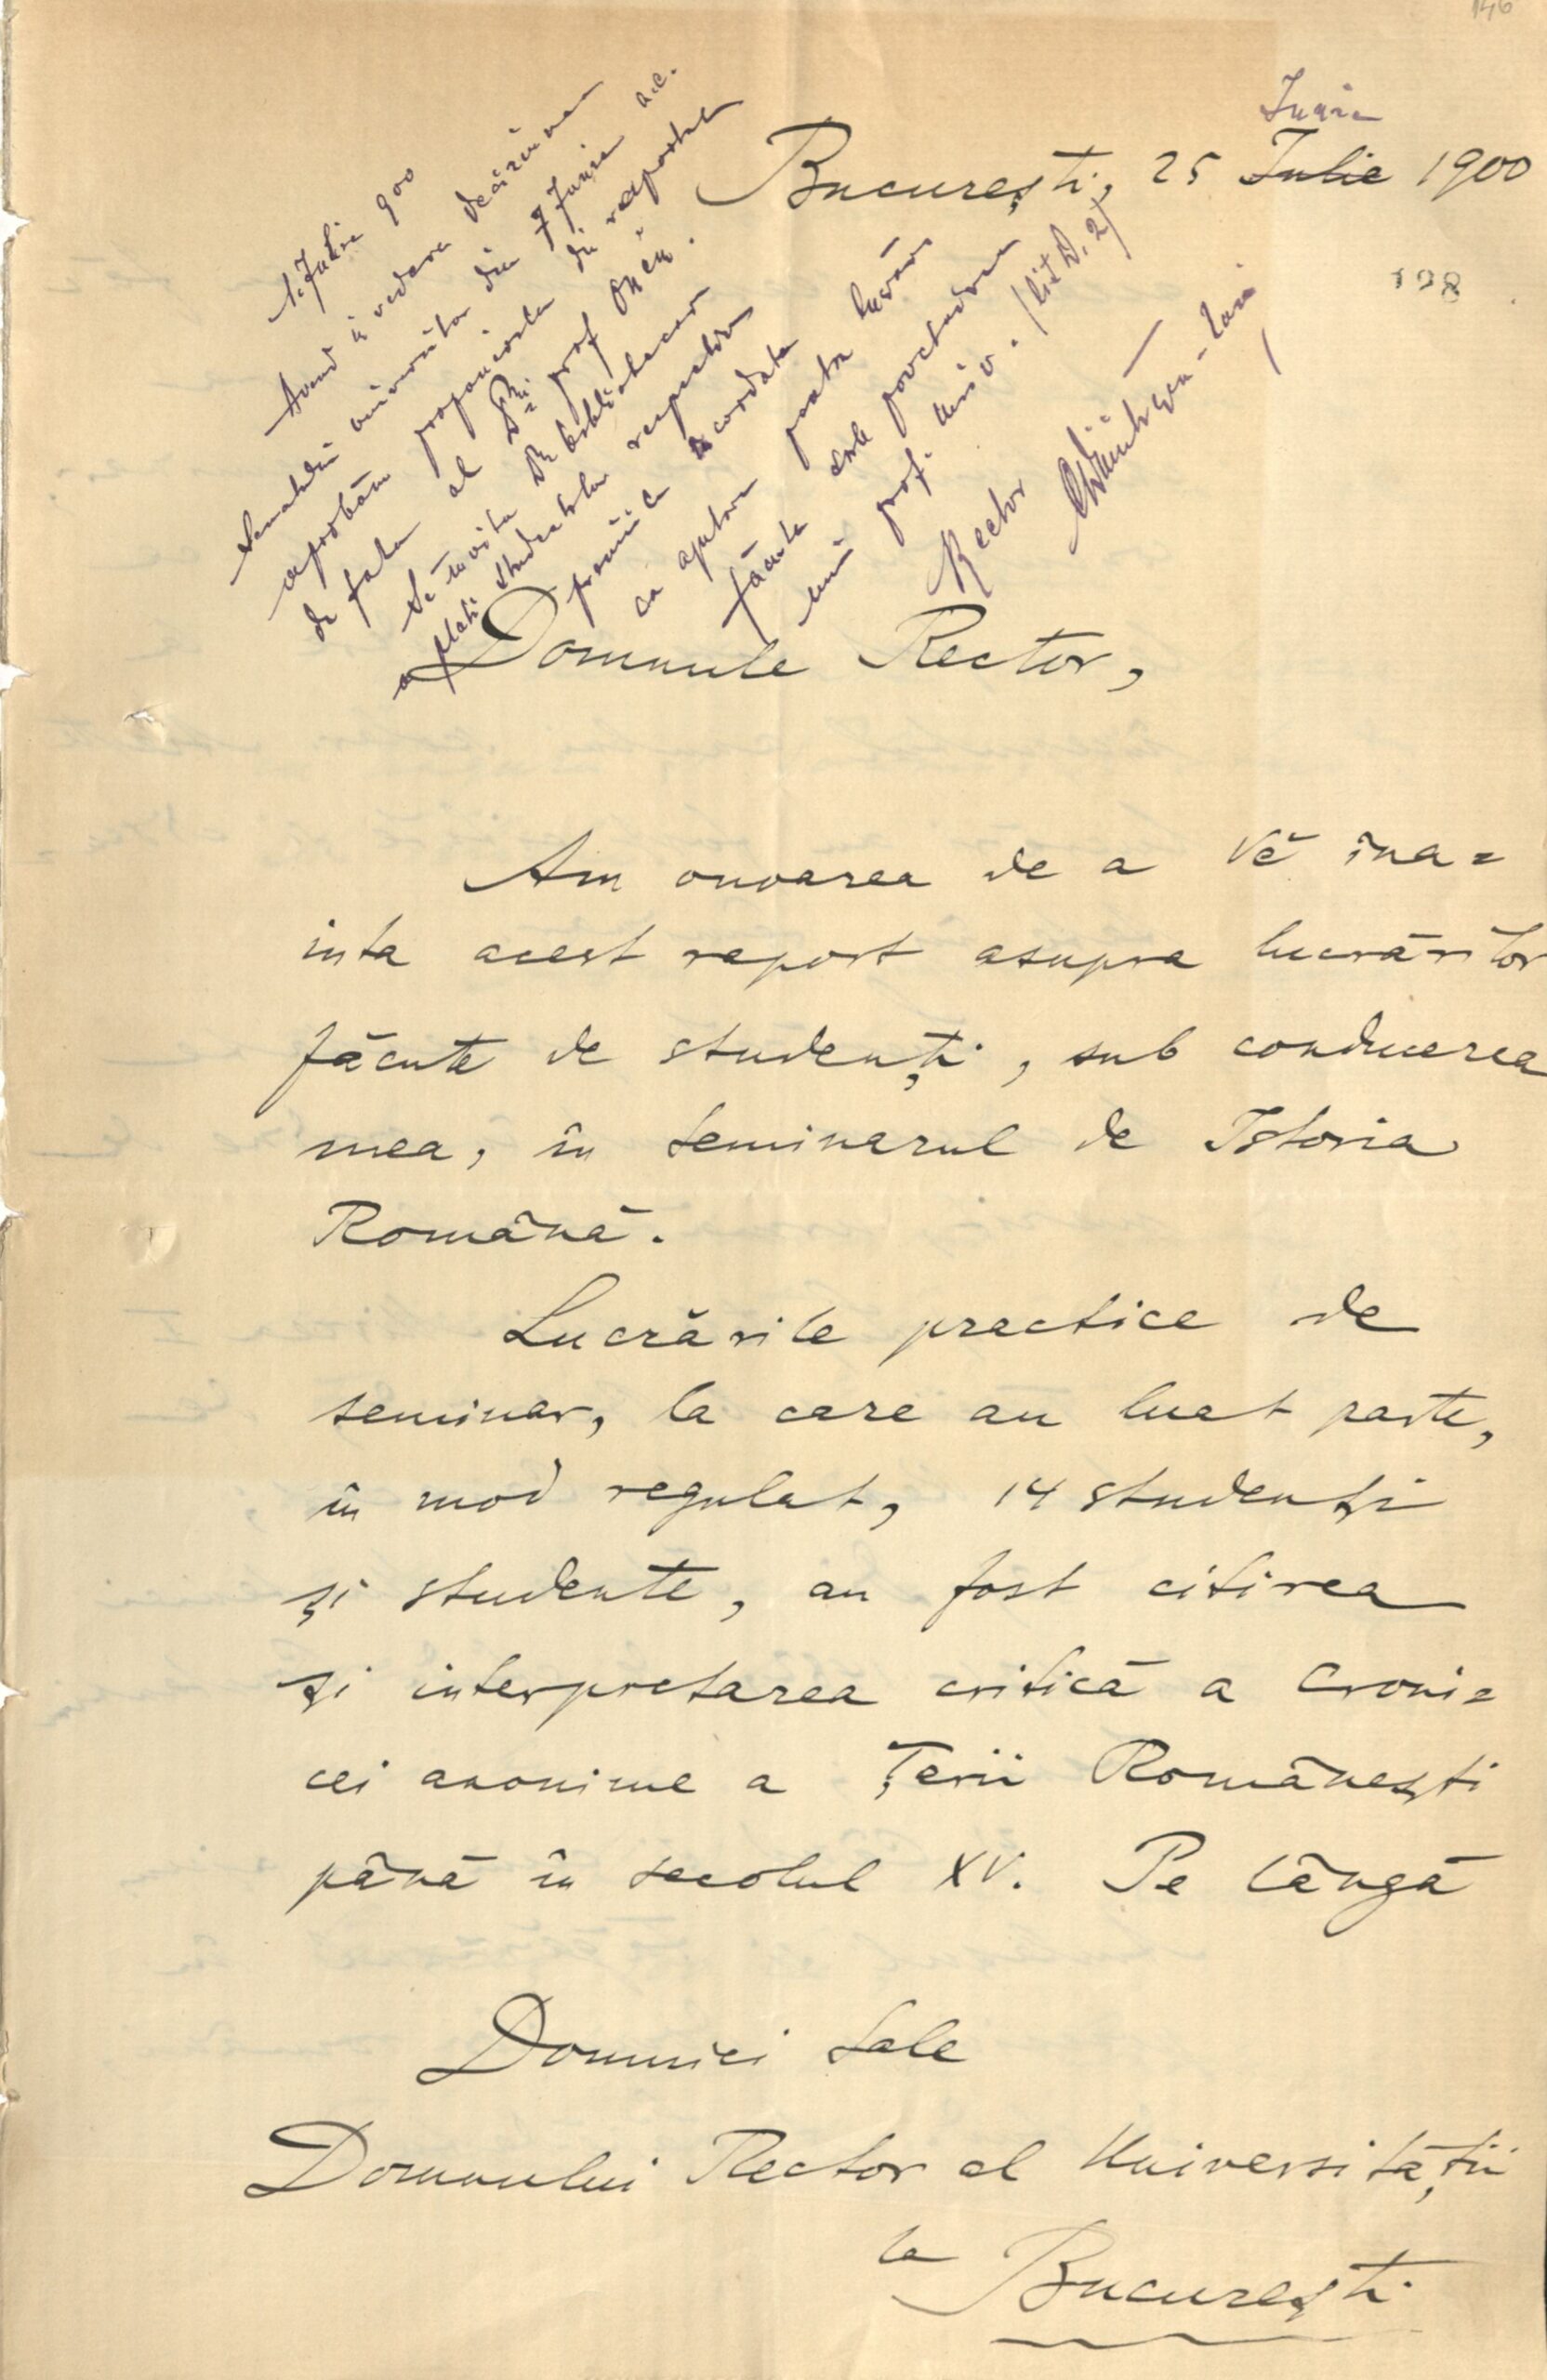 146
Iunie
București, 25 Iulie 1900
198
1. Iulie 900
Avend in vedere decisiunea
Senatului universitar din 7 Junie a.c.
aprobăm propunerile din raportul
de fata al Dlui prof Onciu.
Se invita Dl bibliotecar
a plati studentilor respectivi
premiile acordate
ca ajutor pentru lucrări
făcute sub povetuirea
unui prof. univ. (lit D. 2)
Rector
Domnule Rector,
Am onoarea de a Vĕ îna=
inta acest raport asupra lucrărilor
făcute de studenți, sub conducerea
mea, în seminarul de Istoria
Română.
Lucrările practice de
seminar, la care au luat parte,
în mod regulat, 14 studenți
și studente, au fost citirea
și interpretarea critică a Croni=
cei anonime a Țerii Românești
până în secolul XV. Pe lângă
Domniei Sale
Domnului Rector al Universității
la București